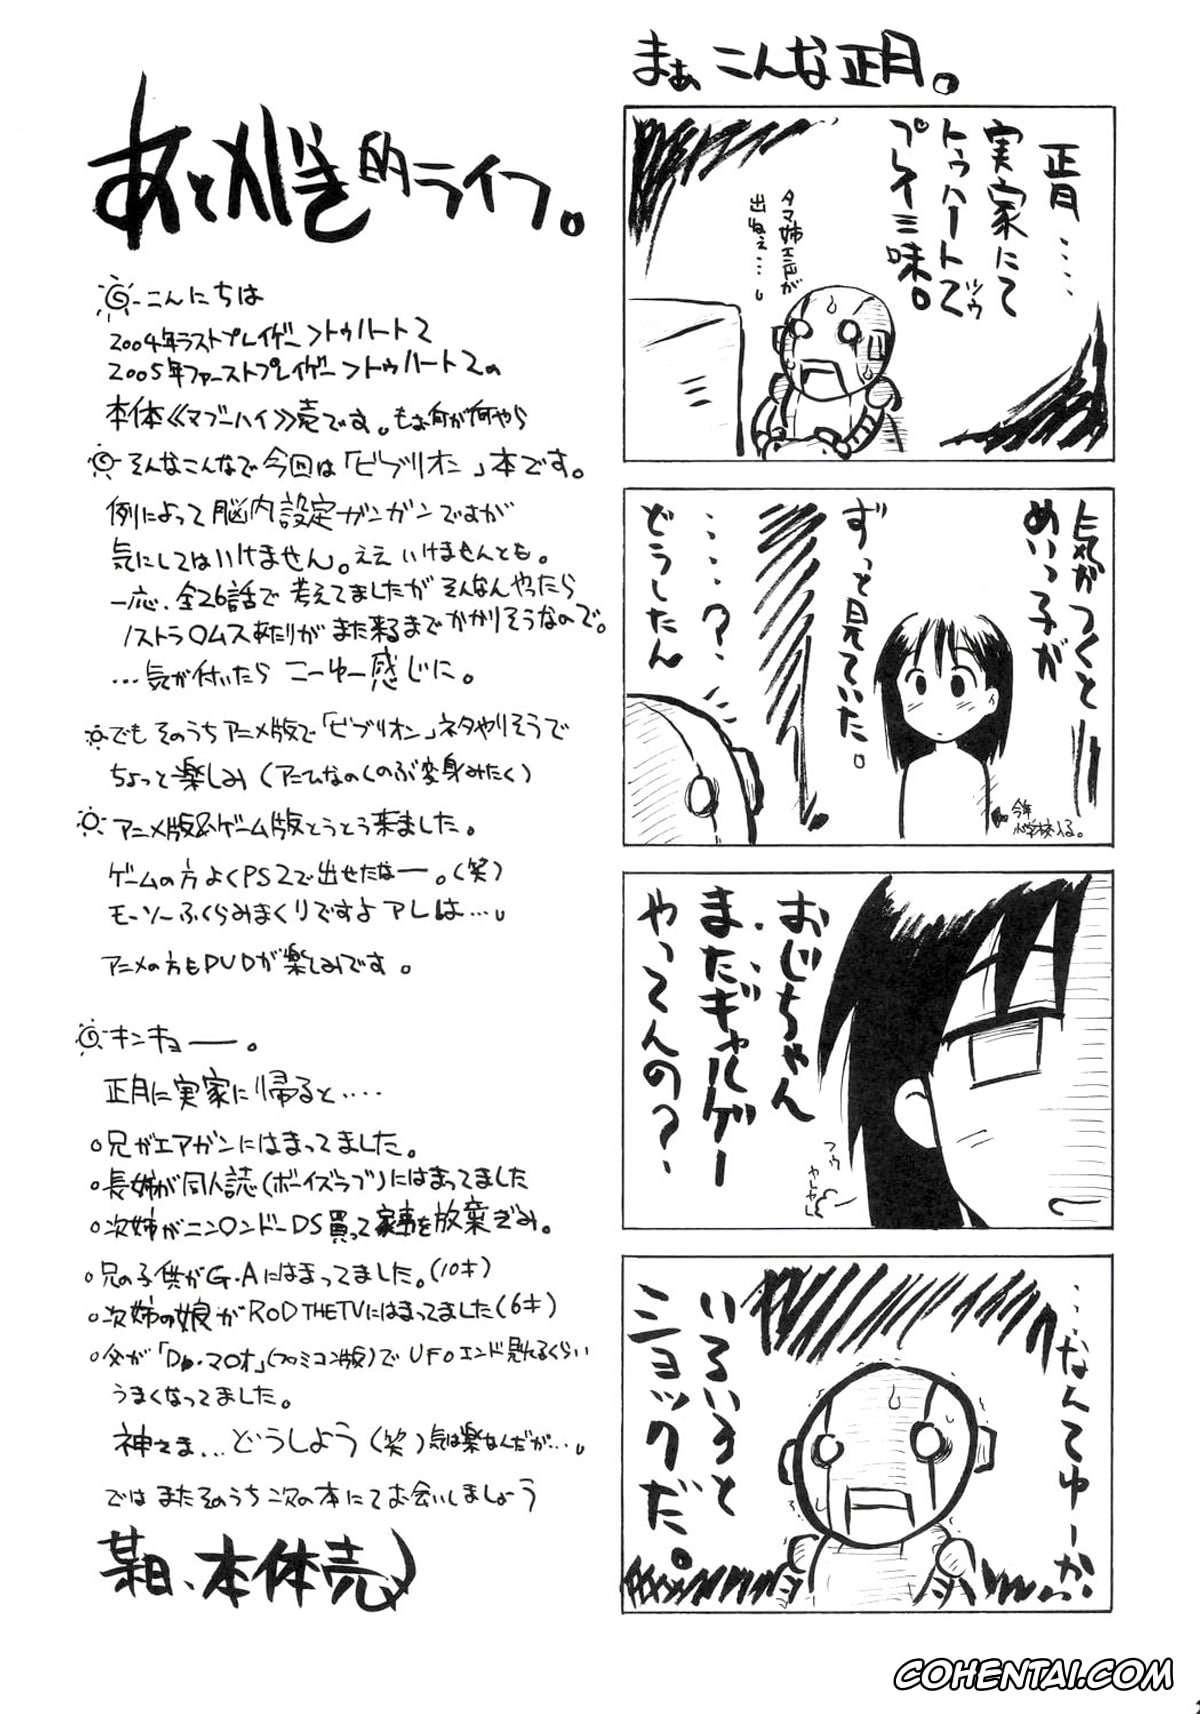 まぁ、こんな正月。
正月‥‥
実家にて
トゥハート2
ツウ
プレイ三昧。
タマ姉エンドが
出ねぇ…。
気がつくと
めいっ子が
ずっと見ていた。
‥‥?
どうしたん
今年
小学校入る。
おじちゃん
またギャルゲー
やってんの?
フゥ
ヤレヤレ
‥‥なんてゆーか
いろいろと
ショックだ。
あとがき的ライフ。
こんにちは
2004年ラストプレイゲー>トゥハート2
2005年ファーストプレイゲー>トゥハート2の
本体《マブーハイ》売です。もぉ何が何やら
そんなこんなで今回は「ビブリオン」本です。
例によって脳内設定ガンガンですが
気にしてはいけません。ええ いけませんとも。
一応、全26話で考えてましたが そんなんやったら
ノストラ〇ムスあたりがまた来るまでかかりそうなので。
…気が付いたら こーゆー感じに。
でも そのうちアニメ版で「ビブリオン」ネタやりそうで
ちょっと楽しみ(アニひなのしのぶ変身みたく)
アニメ版&ゲーム版とうとう来ました。
ゲームの方 よくPS2で出せたなー。(笑)
モーソーふくらみまくりですよ アレは…。
アニメの方もDVDが楽しみです。
キンキョー。
正月に実家に帰ると‥‥
○兄がエアガンにはまってました。
○長姉が同人誌(ボーイズラブ)にはまってました
○次姉がニン〇ンドーDS買って家事を放棄ぎみ。
○兄の子供がG.Aにはまってました。(10才)
○次姉の娘がROD THE TVにはまってました(6才)
○父が「Dr.マ〇オ」(ファミコン版)でUFOエンド見れるくらい
うまくなってました。
神さま…どうしよう(笑)気は楽なんだが…。
ではまたそのうち次の本にてお会いしましょう
某日、本体売
COHENTAI.COM